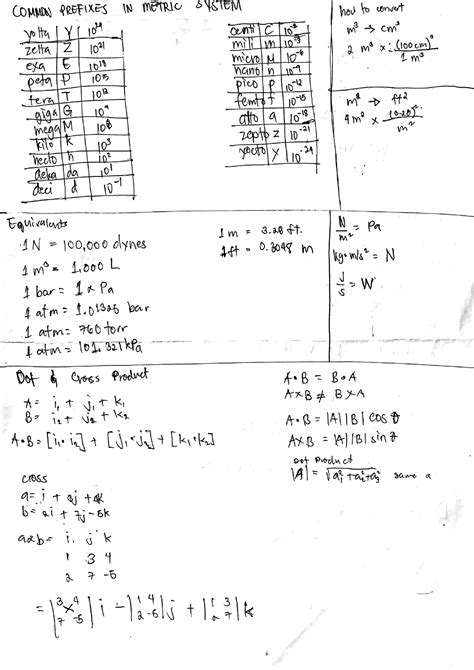 COMMON PREFIXES IN METRIC SYSTEM
yotta Y 10²⁴
zetta Z 10²¹
exa E 10¹⁸
peta P 10¹⁵
tera T 10¹²
giga G 10⁹
mega M 10⁶
kilo K 10³
hecto h 10²
deka da 10¹
deci d 10⁻¹
centi C 10⁻²
mili m 10⁻³
micro M 10⁻⁶
nano n 10⁻⁹
pico p 10⁻¹²
femto f 10⁻¹⁵
atto a 10⁻¹⁸
zepto z 10⁻²¹
yocto y 10⁻²⁴
how to convert
m³ → cm³
2 m³ × (100cm)³ / 1 m³
m² → ft²
4m² ×
m²
Equivalents
1N = 100,000 dynes
1 m³ = 1,000 L
1 bar = Pa
1 atm = 1.01325 bar
1 atm = 760 torr
1 atm = 101.321 kPa
1 m = 3.28 ft.
1 ft = 0.3048 m
N/m² = Pa
kg·m/s² = N
J/s = W
Dot & Cross Product
A = i₁ + j₁ + k₁
B = i₂ + j₂ + k₂
A•B = [i₁•i₂] + [j₁•j₂] + [k₁•k₂]
A•B = B•A
A×B ≠ B×A
A•B = |A||B| cos θ
A×B = |A||B| sin θ
Dot Product
|A| = √a²ᵢ + a²ⱼ + a²ⱼ same a
cross
a = i + 3j + 4k
b = 2i + 7j - 5k
a×b = i j k
1 3 4
2 7 -5
= |3 4 / 7 -5| i - |1 4 / 2 -5| j + |1 3 / 2 7| k